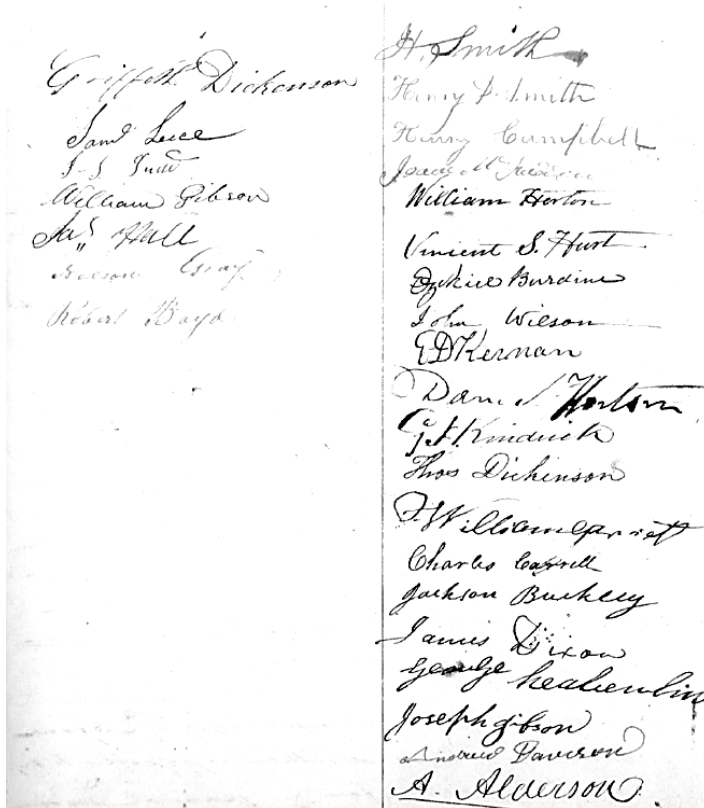 Griffith Dickenson
Saml Luce
William Gibson
Jas Hall
Gray
Robert Boyd
H. Smith
Henry D. Smith
Henry Campbell
Isaac
William Horton
Vincent S. Hurt
Ezekiel Burdine
John Wilson
E D Kernan
Danl Horton
Kindrick
Thos Dickenson
William
Charles Carrell
Jackson Buckley
James Dixon
George
Joseph gibson
Andrew Davidson
A. Alderson